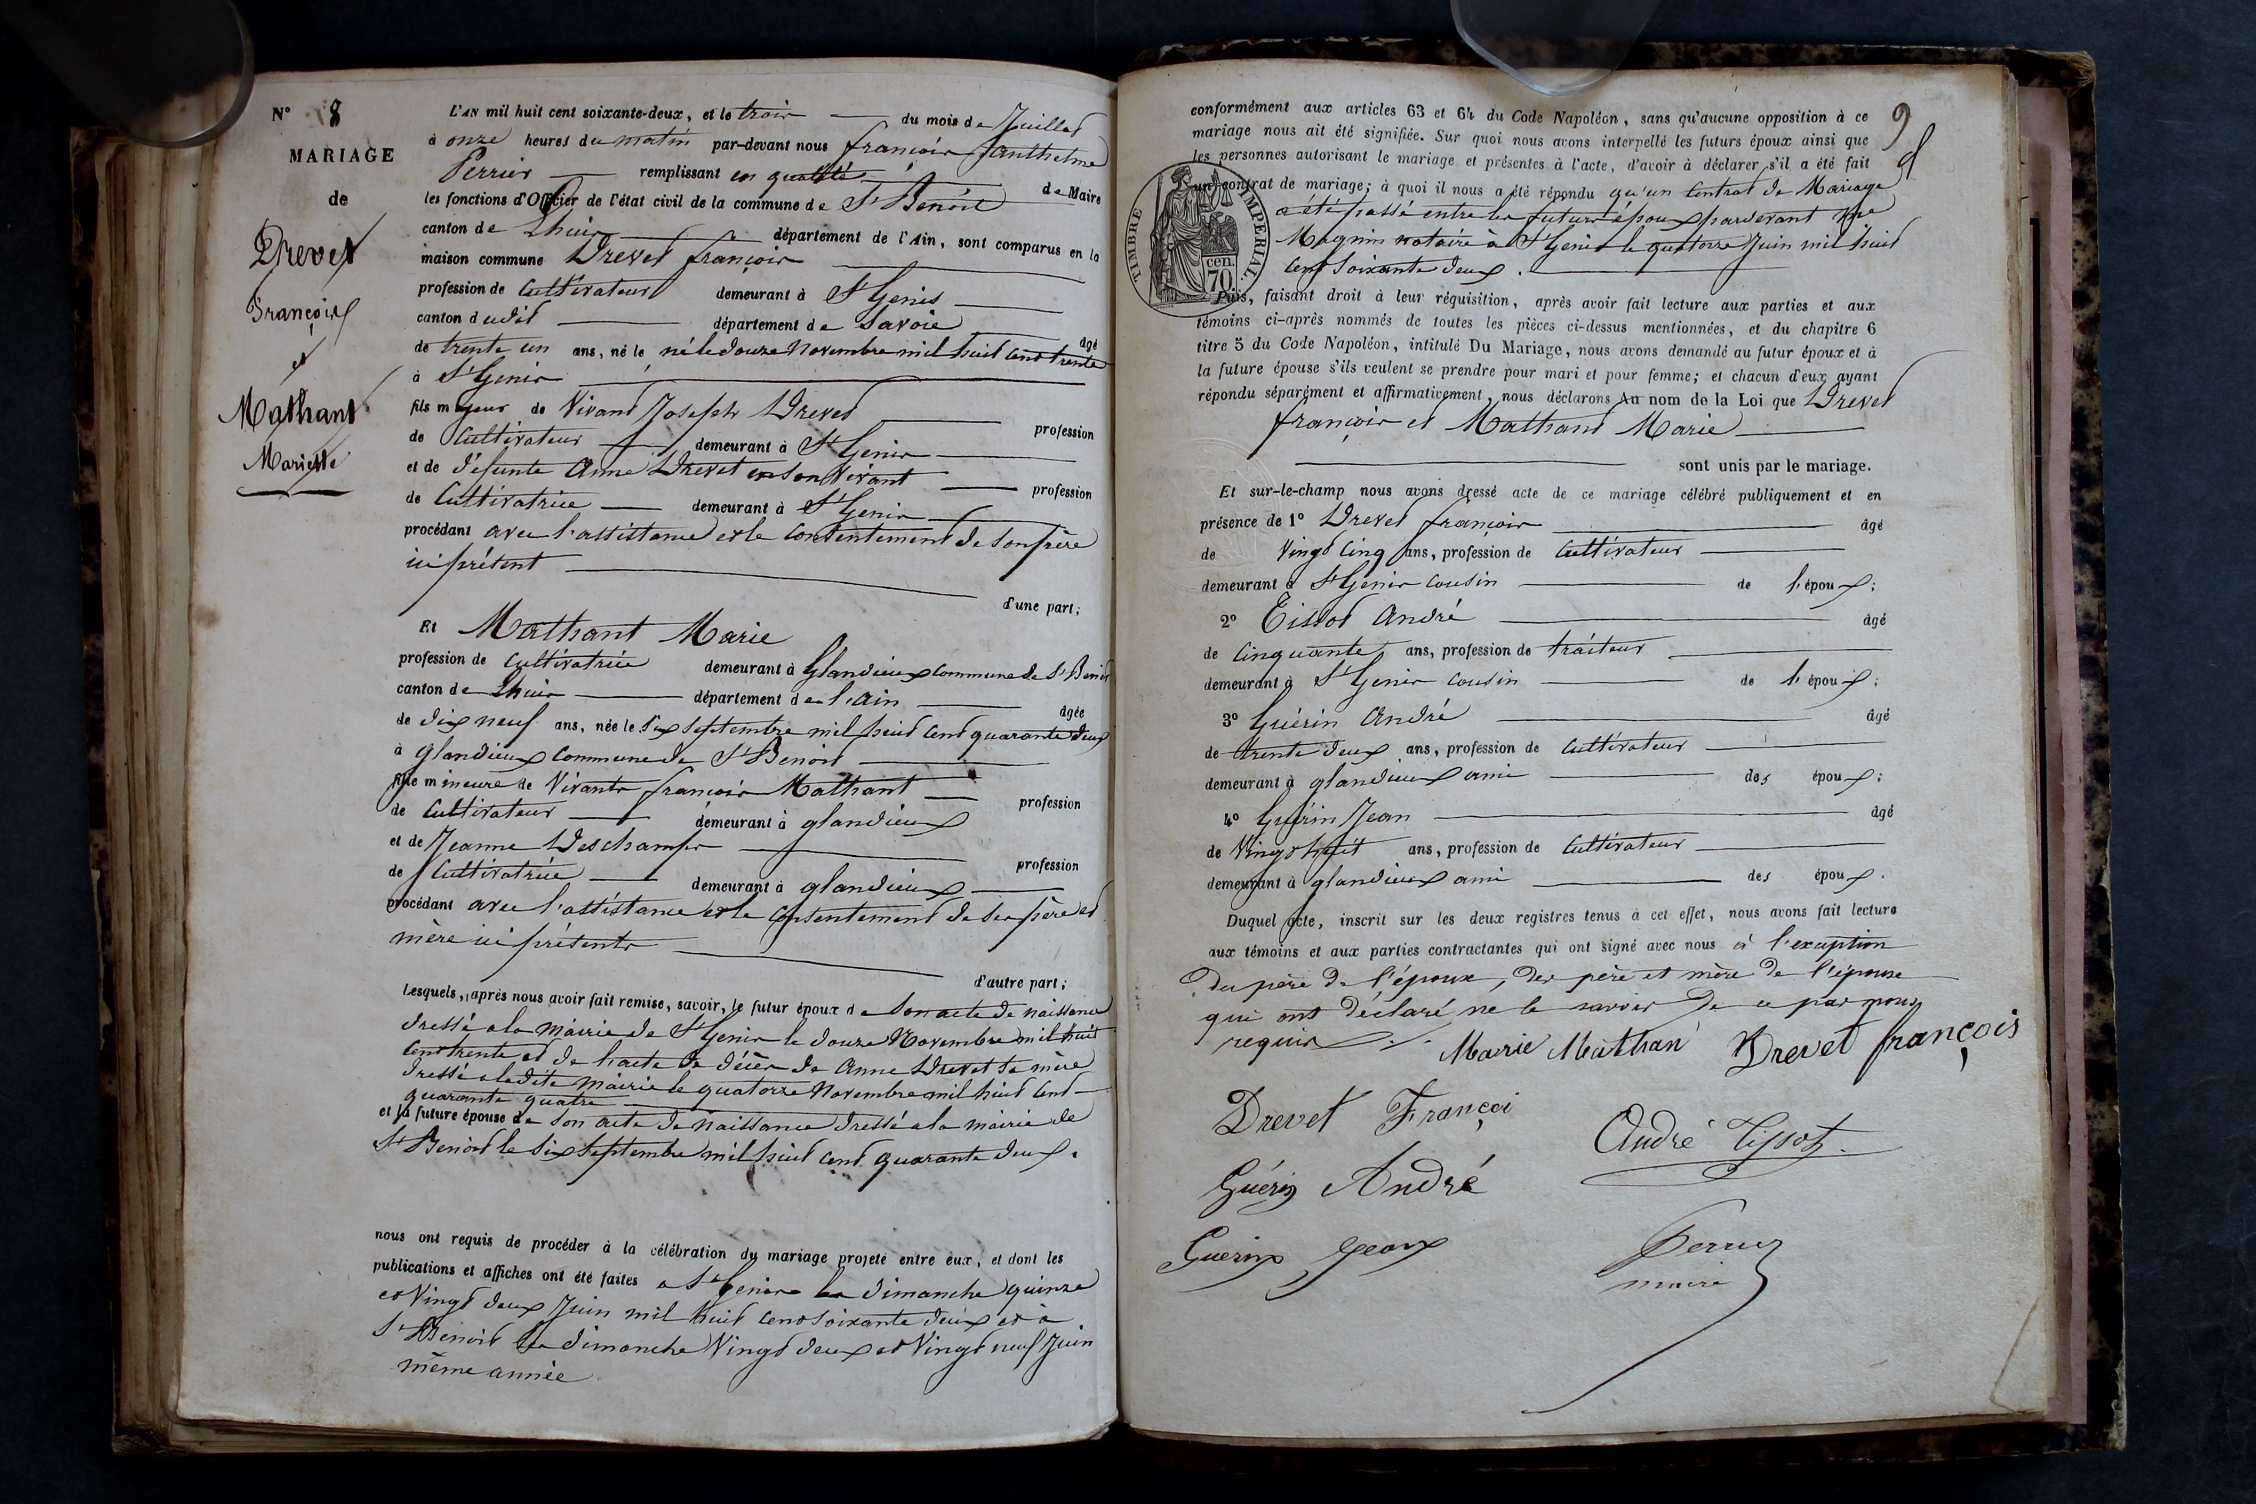 N° 8
MARIAGE
de
Drevet
François
et
Mathant
Marie
L'AN mil huit cent soixante-deux, et le trois du mois de Juillet
à onze heures du matin par-devant nous françois Anthelme
Perrier remplissant en qualité de Maire
les fonctions d'Officier de l'état civil de la commune de St Benoit
canton de Lhuis département de l'Ain, sont comparus en la
maison commune Drevet françois
profession de Cultivateur demeurant à St Genis
canton dudit département de Savoie
de trente un ans, né le né le douze Novembre mil huit cent trente âgé
à St Genis
fils majeur de Vivant Joseph Drevet profession
de Cultivateur demeurant à St Genis
et de défunte Anne Drevet en son Vivant profession
de Cultivatrice demeurant à St Genis
procédant avec l'assistance et le Consentement de son père
ici présent
d'une part;
Et Mathant Marie
profession de Cultivatrice demeurant à Glandieux commune de St Benoit
canton de Lhuis département de l'ain
de dix neuf ans, née le six septembre mil huit cent quarante deux âgée
à glandieux commune de St Benoit
fille mineure de Vivants françois Mathant profession
de Cultivateur demeurant à glandieux
et de Jeanne Deschamps profession
de Cultivatrice demeurant à glandieux
procédant avec l'assistance et le Consentement de ses père et
mère ici présents
d'autre part;
Lesquels, après nous avoir fait remise, savoir, le futur époux de son acte de naissance
dressé à la Mairie de St Genis le douze Novembre mil huit
cent trente et de l'acte de décès de Anne Drevet sa mère
dressé à ladite mairie le quatorze Novembre mil huit cent
quarante quatre
et la future épouse de son acte de Naissance dressé à la mairie de
St Benoit le six Septembre mil huit cent quarante deux.
nous ont requis de procéder à la célébration du mariage projeté entre eux, et dont les
publications et affiches ont été faites à St Genis les dimanche quinze
et Vingt deux Juin mil huit cent soixante deux et à
St Benoit les dimanche Vingt deux et Vingt neuf Juin
même année
9
conformément aux articles 63 et 64 du Code Napoléon, sans qu'aucune opposition à ce
mariage nous ait été signifiée. Sur quoi nous avons interpellé les futurs époux ainsi que
les personnes autorisant le mariage et présentes à l'acte, d'avoir à déclarer s'il a été fait
un contrat de mariage; à quoi il nous a été répondu qu'un Contrat de Mariage
a été passé entre les futurs époux pardevant Me
Magnin notaire à St Genis le quatorze Juin mil huit
cent soixante deux.
TIMBRE IMPERIAL.
cen. 70.
Puis, faisant droit à leur réquisition, après avoir fait lecture aux parties et aux
témoins ci-après nommés de toutes les pièces ci-dessus mentionnées, et du chapitre 6
titre 5 du Code Napoléon, intitulé Du Mariage, nous avons demandé au futur époux et à
la future épouse s'ils veulent se prendre pour mari et pour femme; et chacun d'eux ayant
répondu séparément et affirmativement, nous déclarons Au nom de la Loi que Drevet
françois et Mathant Marie
sont unis par le mariage.
Et sur-le-champ nous avons dressé acte de ce mariage célébré publiquement et en
présence de 1° Drevet françois âgé
de Vingt Cinq ans, profession de Cultivateur
demeurant à St Genis cousin de l'époux;
2° Tissot André âgé
de Cinquante ans, profession de traiteur
demeurant à St Genis cousin de l'époux;
3° Guérin André âgé
de trente deux ans, profession de Cultivateur
demeurant à glandieux ami des époux;
4° Guérin Jean âgé
de Vingt huit ans, profession de Cultivateur
demeurant à glandieux ami des époux.
Duquel acte, inscrit sur les deux registres tenus à cet effet, nous avons fait lecture
aux témoins et aux parties contractantes qui ont signé avec nous à l'exception
du père de l'époux, des père et mère de l'épouse
qui ont déclaré ne le savoir de ce par nous
requis
Marie Mathan Drevet françois
Drevet Françoi
André Tissot.
Guérin André
Guerin Jean
Perrier
maire